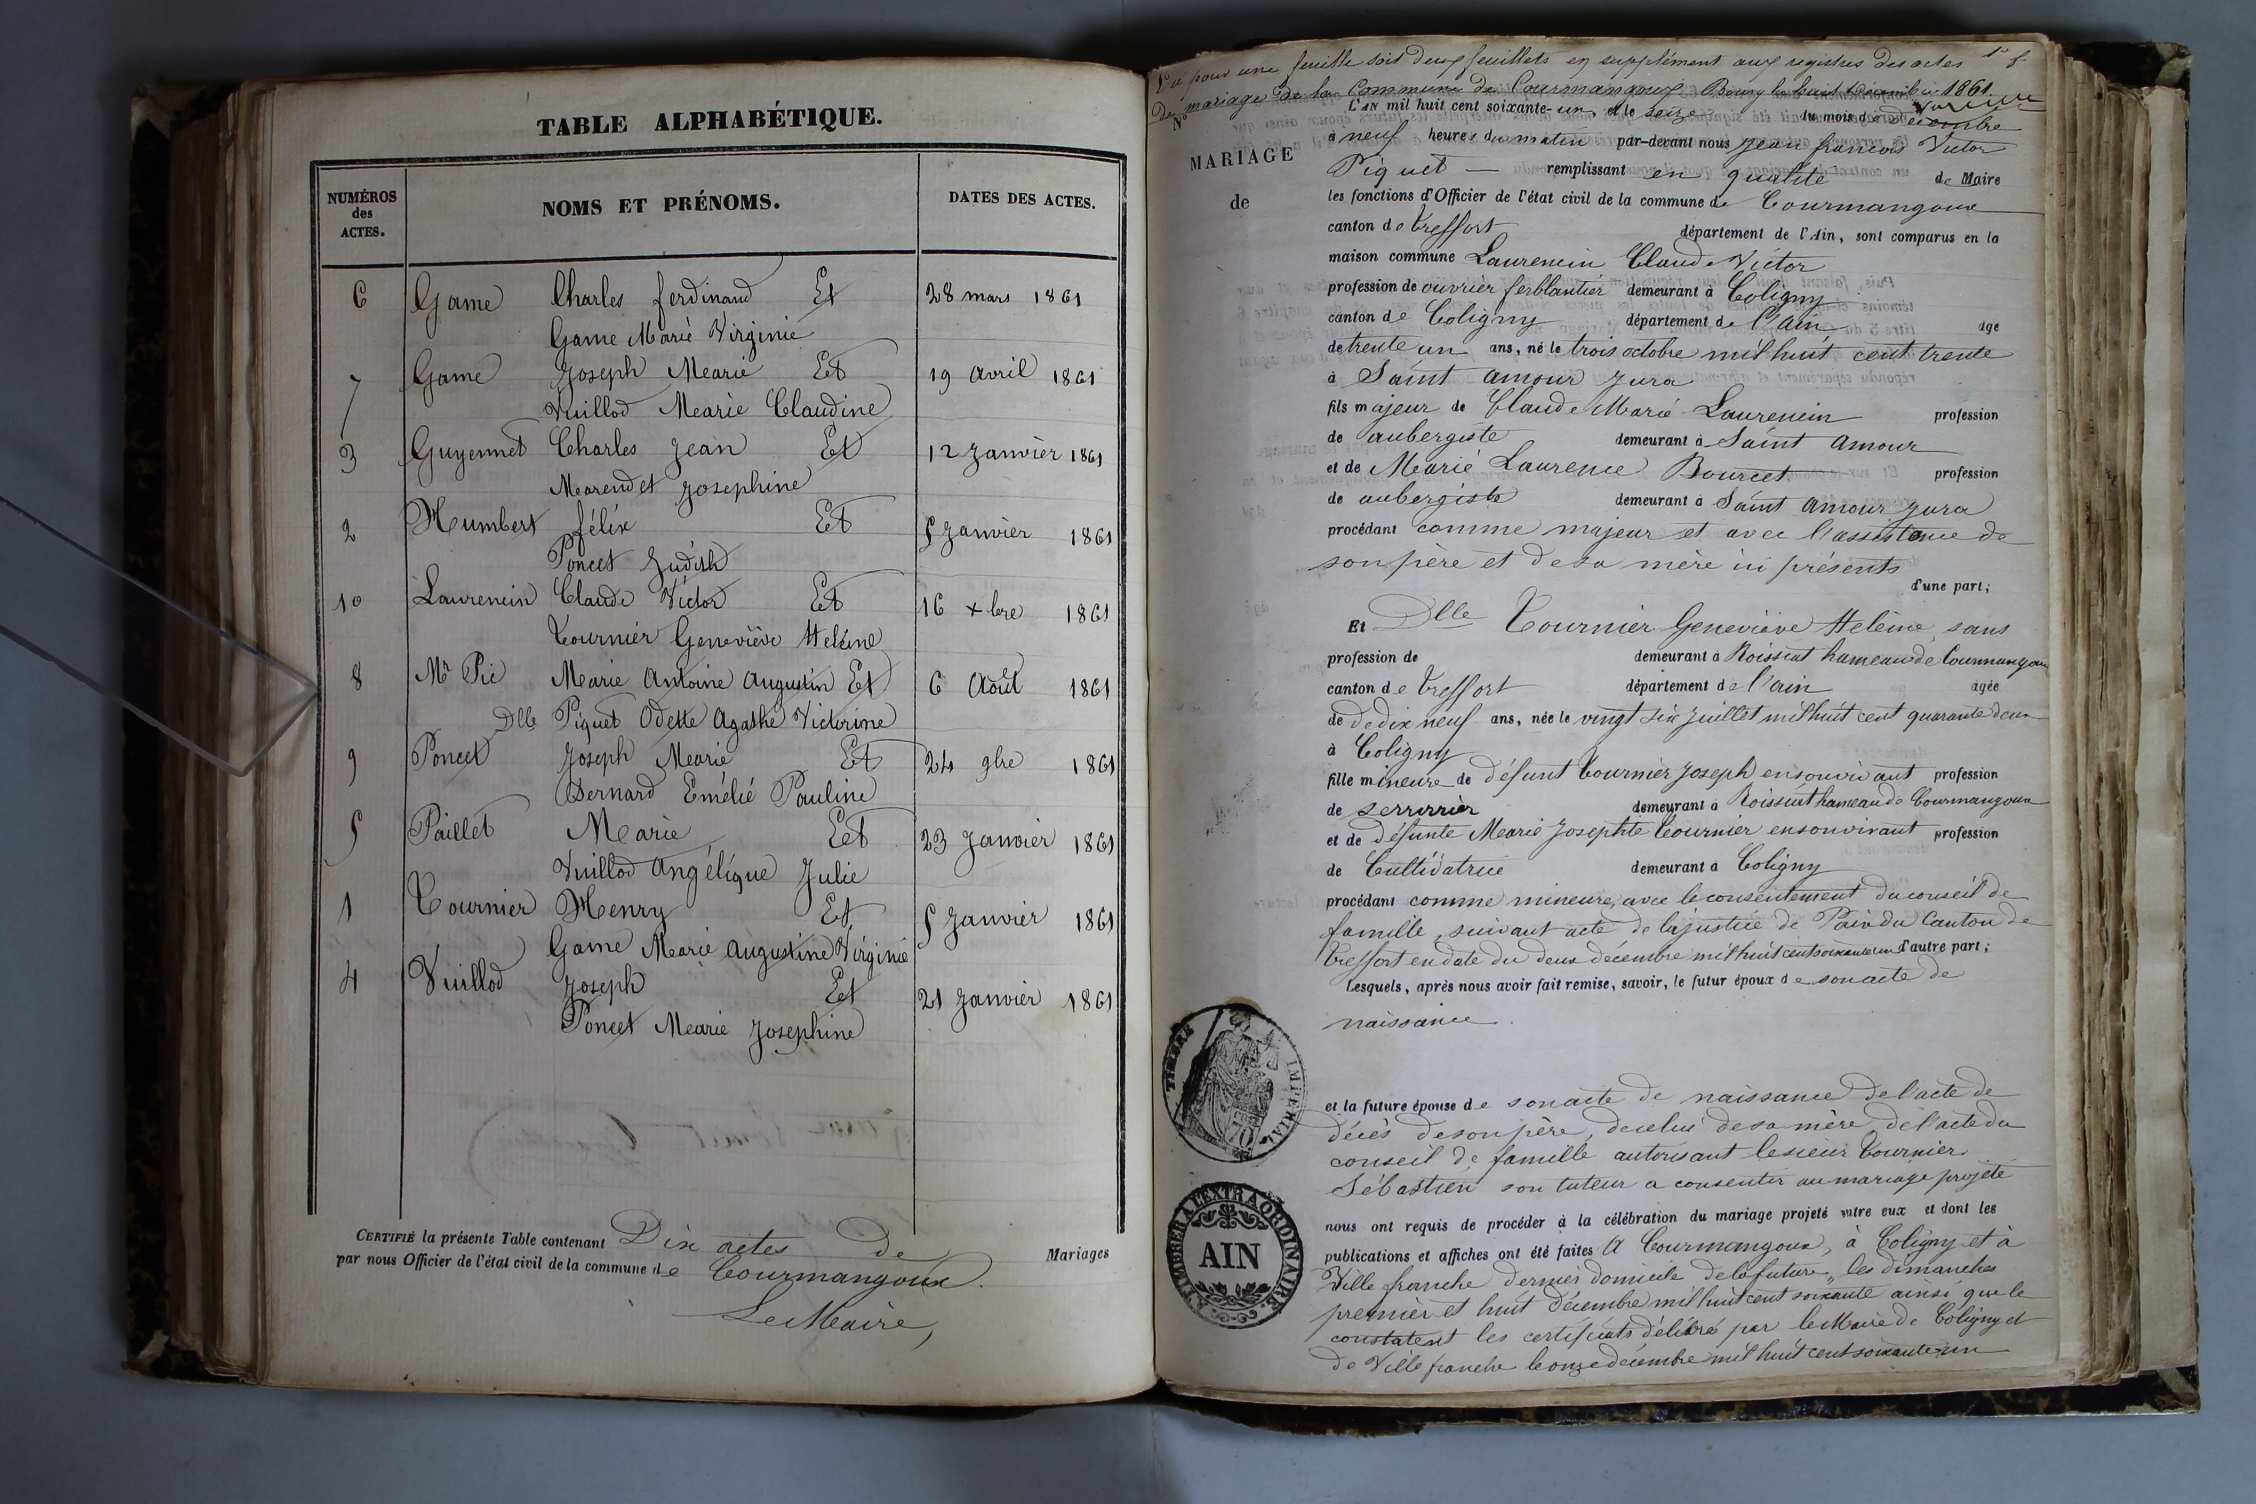 TABLE ALPHABÉTIQUE.
NUMÉROS des ACTES.
NOMS ET PRÉNOMS.
DATES DES ACTES.
6 Game Charles ferdinand Et 28 mars 1861
Game Marie Virginie
7 Game Joseph Marie Et 19 avril 1861
Vuillod Marie Claudine
3 Guyennet Charles Jean Et 12 Janvier 1861
Marendet Josephine
2 Humbert félix Et 5 Janvier 1861
Poncet Judith
10 Laurencin Claude Victor Et 16 xbre 1861
Tournier Geneviève Heléne
8 Mr Pic Marie Antoine Augustin Et 6 Août 1861
Dlle Piquet Odette Agathe Victorine
9 Poncet Joseph Marie Et 24 9bre 1861
Bernard Emélié Pauline
5 Paillet Marie Et 23 Janvier 1861
Vuillod Angélique Julie
1 Tournier Henry Et 5 Janvier 1861
Game Marie Augustine Virginie
4 Vuillod Joseph Et 21 Janvier 1861
Poncet Marie Josephine
CERTIFIÉ la présente Table contenant Dix actes de Mariages
par nous Officier de l'état civil de la commune de Courmangoux.
Le Maire,
Vu pour une feuille soit deux feuillets en supplément aux registres des actes
de mariage de la Commune de Courmangoux Bourg le huit Décembre 1861.
N°
MARIAGE
de
L'AN mil huit cent soixante-un, et le seize du mois de Décembre
à neuf heures du matin par-devant nous Jean françois Victor
Piquet — remplissant en qualité de Maire
les fonctions d'Officier de l'état civil de la commune de Courmangoux
canton de Treffort département de l'Ain, sont comparus en la
maison commune Laurencin Claude Victor
profession de ouvrier ferblantier demeurant à Coligny
canton de Coligny département de l'ain âgé
de trente un ans, né le trois octobre mil huit cent trente
à Saint amour Jura
fils majeur de Claude Marie Laurencin profession
de aubergiste demeurant à Saint Amour
et de Marie Laurence Bourcet profession
de aubergiste demeurant à Saint Amour Jura
procédant comme majeur et avec l'assistance de
son père et de sa mère ici présents
d'une part;
Et Dlle Tournier Geneviève Heléine, sans
profession de demeurant à Roissiat hameau de Courmangoux
canton de Treffort département de l'ain âgée
de de dix neuf ans, née le vingt six Juillet mil huit cent quarante deux
à Coligny
fille mineure de défunt Tournier Joseph en son vivant profession
de serrurier demeurant à Roissiat hameau de Courmangoux
et de défunte Marie Josephte Tournier en son vivant profession
de Cultivatrice demeurant à Coligny
procédant comme mineure, avec le consentement du conseil de
famille, suivant acte de la justice de Paix du Canton de
Treffort en date du deux décembre mil huit cent soixante un d'autre part;
Lesquels, après nous avoir fait remise, savoir, le futur époux de son acte de
naissance
et la future épouse de son acte de naissance de l'acte de
décès de son père, de celui de sa mère, de l'acte du
conseil de famille autorisant le sieur Tournier
Sébastien son tuteur a consentir au mariage projeté
nous ont requis de procéder à la célébration du mariage projeté entre eux et dont les
publications et affiches ont été faites A Courmangoux, à Coligny et à
Ville franche dernier domicile de la future, les dimanches
premier et huit décembre mil huit cent soixante ainsi que le
constatent les certificats délivré par le Maire de Coligny et
de Ville franche le onze décembre mil huit cent soixante-un
TIMBRE IMPÉRIAL
TIMBRE A L'EXTRAORDINAIRE.
AIN